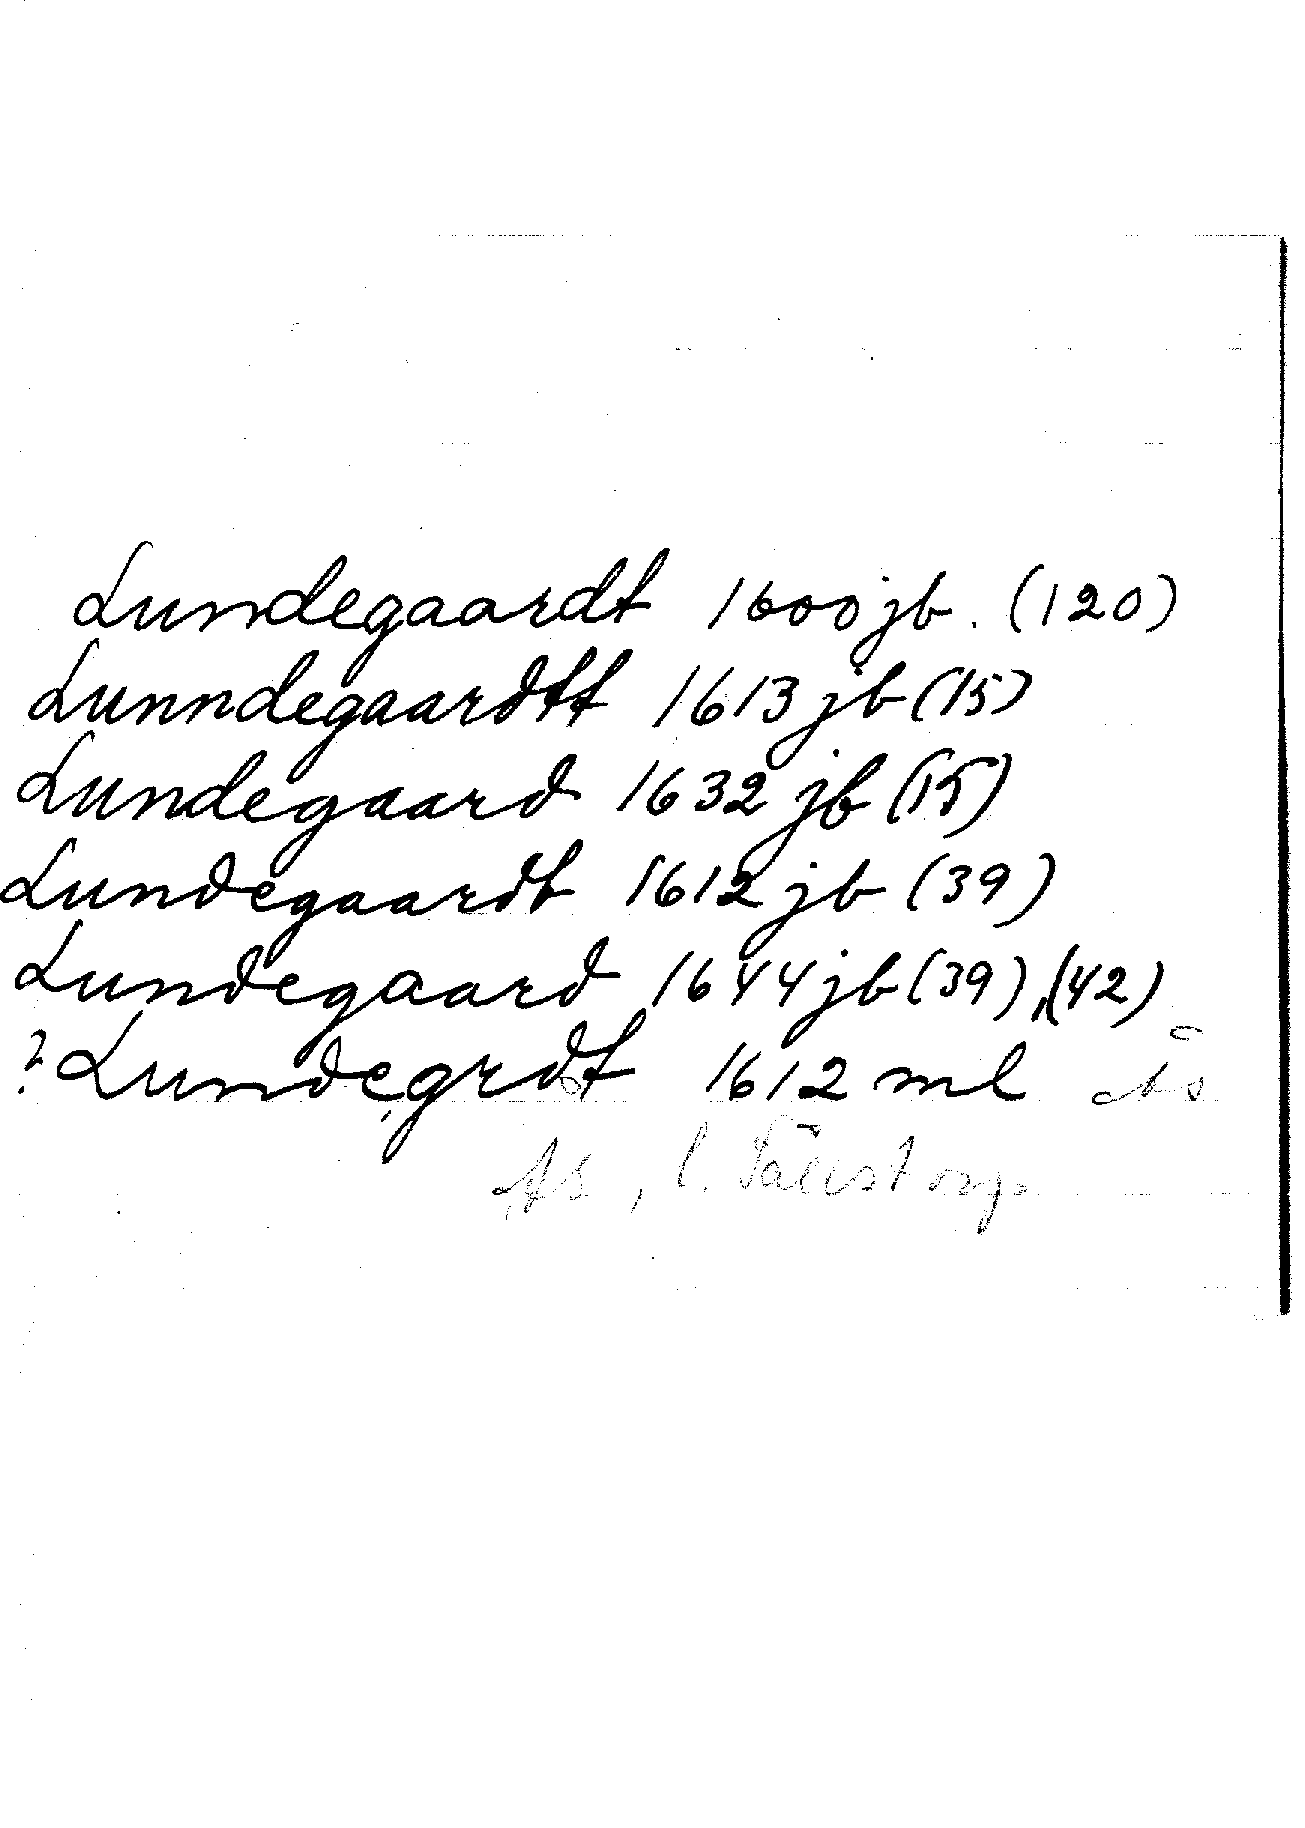 Lundegaardt 1600 jb. (120)
Lunndegaardtt 1613 jb (15)
Lundegaard 1632 jb (15)
Lundegaardt 1612 jb (39)
Lundegaard 1644 jb (39), (42)
? Lundegrdt 1612 ml